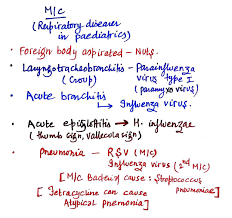 M/C
(Respiratory diseases
in paediatrics)
• Foreign body aspirated - Nuts.
• Laryngotracheobronchitis - Parainfluenza
(Croup) virus type I
(paramyxo virus)
• Acute bronchitis
→ Influenza virus.
• Acute epiglottitis → H. influenzae
(thumb sign, vallecula sign)
• Pneumonia - RSV (M/C)
Influenza virus (2nd M/C)
[M/C Bacterial cause: Streptococcus
pneumoniae]
[Tetracycline can cause
Atypical pnemonia]